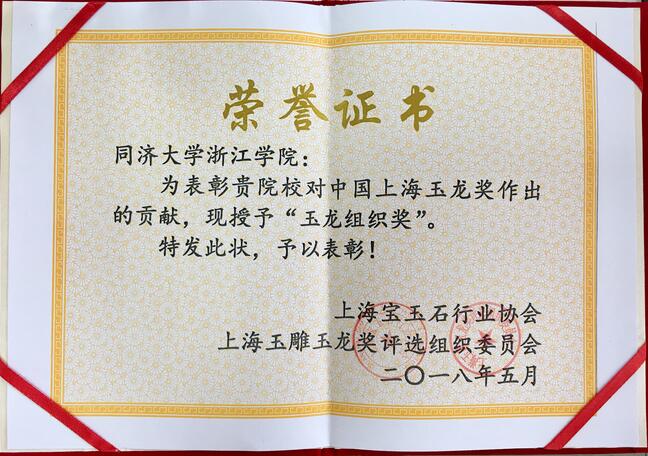 荣誉证书
同济大学浙江学院：
为表彰贵院校对中国上海玉龙奖作出
的贡献，现授予“玉龙组织奖”。
特发此状，予以表彰！
上海宝玉石行业协会
上海玉雕玉龙奖评选组织委员会
二〇一八年五月